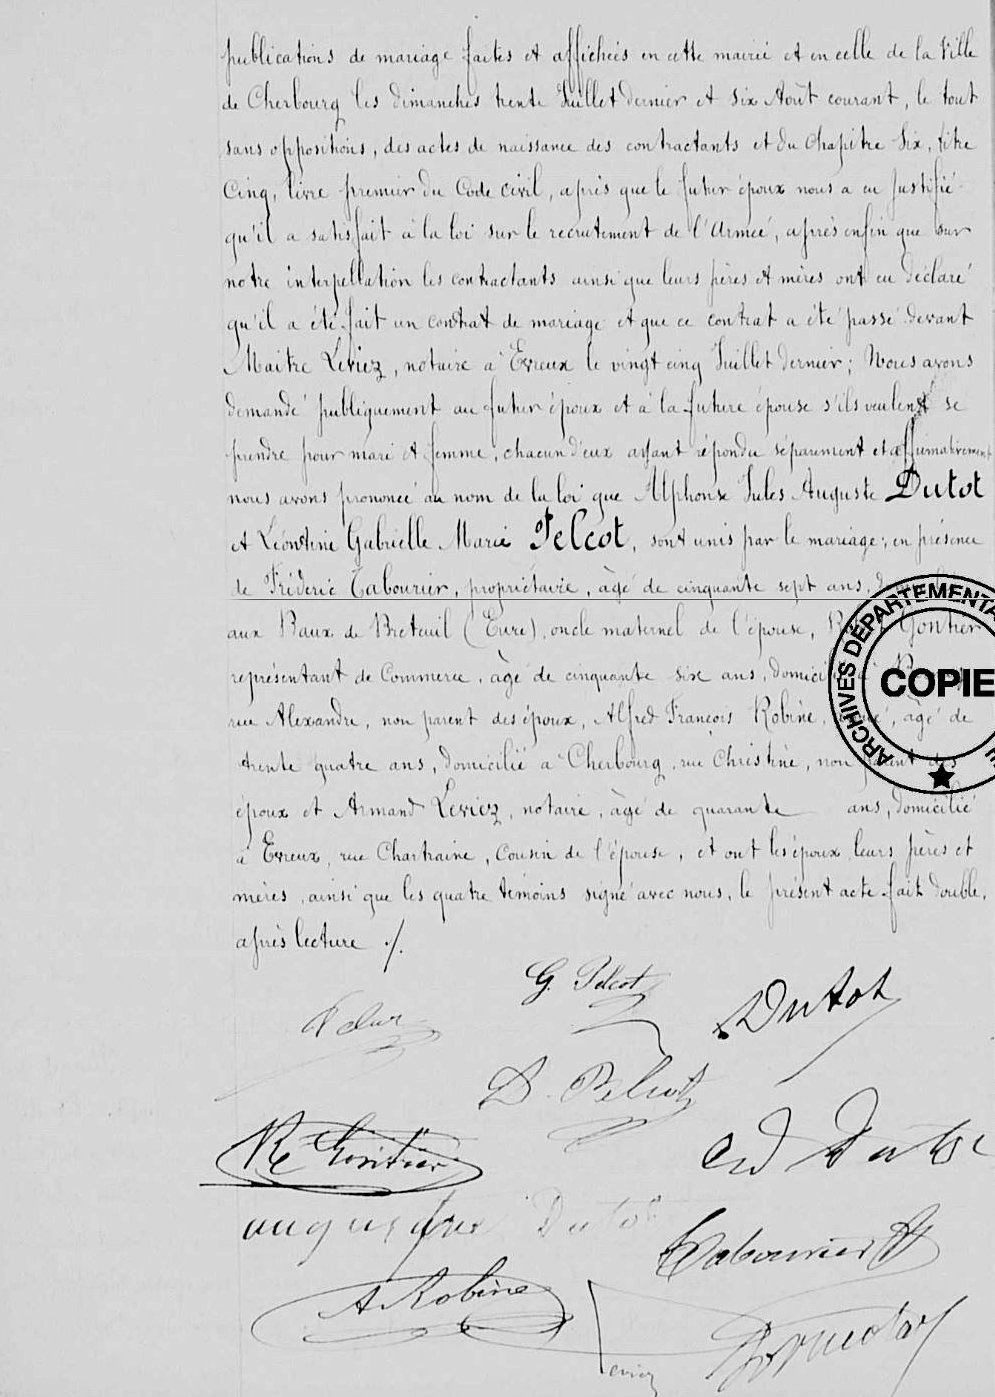 publications de mariage faites et affichées en cette mairie et en celle de la Ville
de Cherbourg les dimanches trente Juillet dernier et six Août courant, le tout
sans oppositions, des actes de naissance des contractants et du Chapitre Six, titre
Cinq, livre premier du Code civil, après que le futur époux nous a eu justifié
qu'il a satisfait à la loi sur le recrutement de l'Armée, après enfin que sur
notre interpellation les contractants ainsi que leurs pères et mères ont eu déclaré
qu'il a été fait un contrat de mariage et que ce contrat a été passé devant
Maître Leviez, notaire à Evreux le vingt cinq Juillet dernier; Nous avons
demandé publiquement au futur époux et à la future épouse s'ils veulent se
prendre pour mari et femme, chacun d'eux ayant répondu séparément et affirmativement
nous avons prononcé au nom de la loi que Alphonse Jules Auguste Dutot
et Léontine Gabrielle Marie Pelcot, sont unis par le mariage; en présence
de Fréderic Tabourier, propriétaire, âgé de cinquante sept ans,
aux Baux de Breteuil (Eure), oncle maternel de l'épouse, Gontier
représentant de Commerce, âgé de cinquante six ans, domicilié à
rue Alexandre, non parent des époux, Alfred François Robine, âgé de
trente quatre ans, domicilié à Cherbourg, rue Christine, non parent des
époux et Armand Leviez, notaire, âgé de quarante ans, domicilié
à Evreux, rue Chartraine, Cousin de l'épouse, et ont les époux, leurs pères et
mères, ainsi que les quatre témoins signé avec nous, le présent acte fait double,
après lecture ./.
ARCHIVES DÉPARTEMENTA
COPIE
G. Pelcot
Dutot
D. Pelcot
Re Gontier
Dutot
Tabourier
A Robine
Leviez